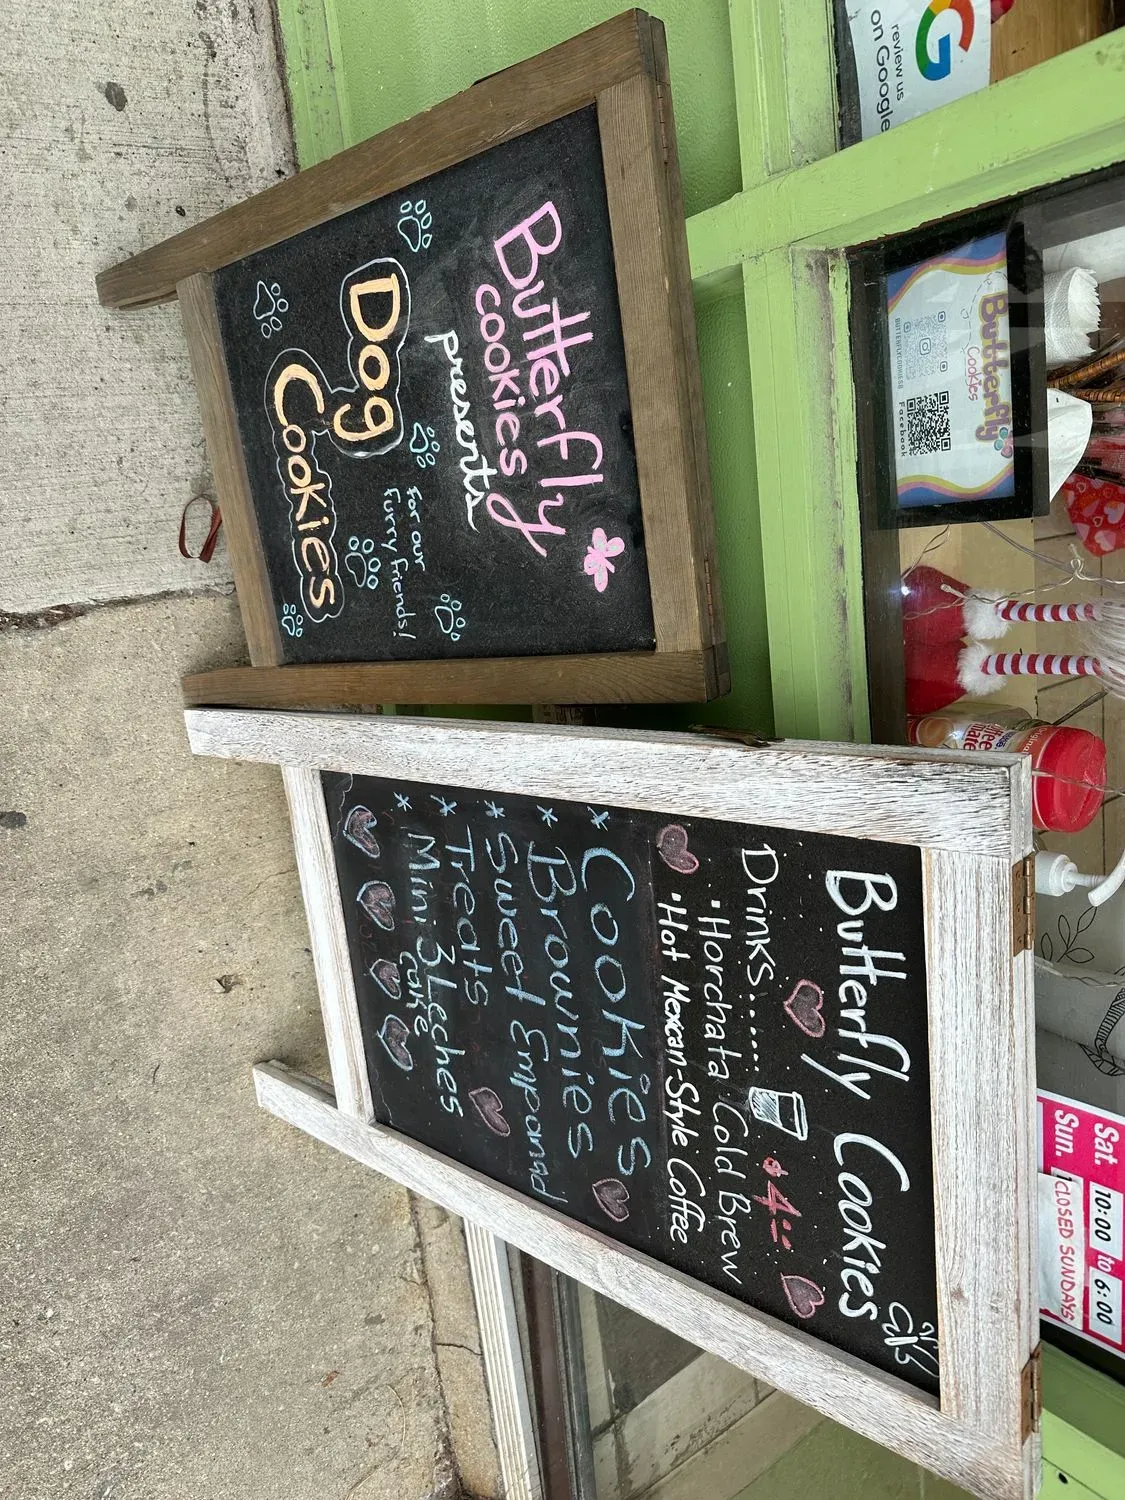 review us
on Google
Butterfly
Cookies
BUTTERFLYCOOKIES8
Facebook
Butterfly
cookies
presents
Dog
Cookies
for our
furry friends!
Butterfly Cookies
Drinks....... $4
·Horchata Cold Brew
·Hot Mexican-Style Coffee
* Cookies
* Brownies
* Sweet Empanad
* Treats
* Mini 3Leches
Cake
Sat. 10:00 to 6:00
Sun. CLOSED SUNDAYS